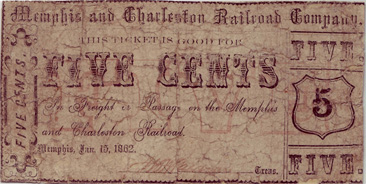 Memphis and Charleston Railroad Company.
THIS TICKET IS GOOD FOR
FIVE CENTS
In Freight or Passage on the Memphis
and Charleston Railroad.
Memphis, Jan. 15, 1862.
Treas.
FIVE CENTS.
FIVE.
5
FIVE.